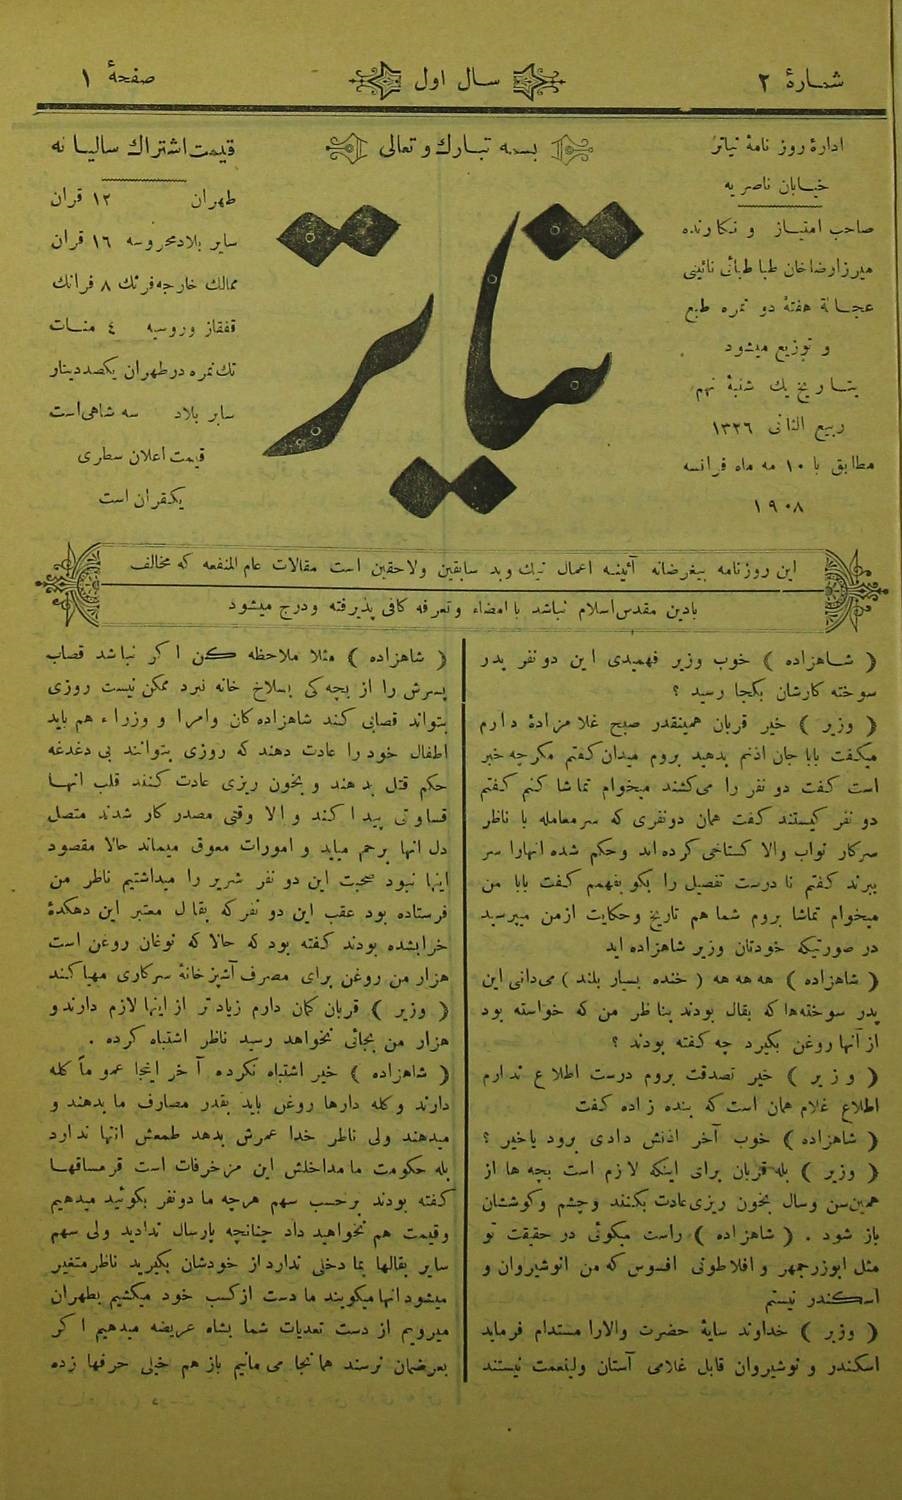 شمارهٔ ۲
سال اول
صفحهٔ ۱
ادارهٔ روز نامهٔ تیاتر
خیابان ناصریه
صاحب امتیاز و نکارنده
میرزارضاخان طباطبائی نائینی
عجالهٔ هفتهٔ دو نمره طبع
و توزیع میشود
بتاریخ یك شنبهٔ نهم
ربیع الثانی ۱۳۲۶
مطابق با ۱۰ مه ماه فرانسه
۱۹۰۸
بسمه تبارك و تعالی
تیاتر
قیمت اشتراك سالیانه
طهران ۱۲ قران
سایر بلادمحروسه ۱۶ قران
ممالك خارجه فرنك ۸ فرانك
قفقاز وروسیه ٤ منات
تك نمره در طهران یکصددینار
سایر بلاد سه شاهی است
قیمت اعلان سطری
یکقران است
این روزنامه بیغرضانه آئینه اعمال نیك وبد سابقین ولاحقین است مقالات عام المنفعه که مخالف
بادین مقدس اسلام نباشد با امضاء وتعرفه کافی پذیرفته ودرج میشود
( شاهزاده ) خوب وزیر فهمیدی این دو نفر پدر
سوخته کارشان بکجا رسید ؟
( وزیر ) خیر قربان همینقدر صبح غلامزادهٔ دارم
میکفت بابا جان اذنم بدهید بروم میدان کفتم مکرچه خبر
است کفت دو نفر را می‌کشند میخوام تماشا کنم کفتم
دو نفر کیستند کفت همان دونفری که سرمعامله با ناظر
سرکار نواب والا کستاخی کرده اند وحکم شده انهارا سر
ببرند کفتم تا درست تفصیل را بکو بفهمم کفت بابا من
میخوام تماشا بروم شما هم تاریخ وحکایت ازمن میپرسید
در صورتیکه خودتان وزیر شاهزاده اید
( شاهزاده ) هه هه هه ( خنده بسیار بلند ) می‌دانی این
پدر سوخته‌ها که بقال بودند بناظر من که خواسته بود
از آنها روغن بکیرد چه کفته بودند ؟
( وزیر ) خیر تصدقت بروم درست اطلاع ندارم
اطلاع غلام همان است که بنده زاده کفت
( شاهزاده ) خوب آخر اذنش دادی برود یاخیر ؟
( وزیر ) بله قربان برای اینکه لازم است بچه ها از
همین‌سن وسال بخون ریزی عادت بکنند وچشم وکوششان
باز شود . ( شاهزاده ) راست میکوئی در حقیقت تو
مثل ابوزرجمهر و افلاطونی افسوس که من انوشیروان و
اسکندر نیستم
( وزیر ) خداوند سایهٔ حضرت والارا مستدام فرماید
اسکندر و نوشیروان قابل غلامی آستان ولینعمت نیستند
( شاهزاده ) مثلا ملاحظه کن اکر نباشد قصاب
پسرش را از بچه کی بسلاخ خانه نبرد ممکن نیست روزی
بتواند قصابی کند شاهزاده کان وامرا و وزراء هم باید
اطفال خود را عادت دهند که روزی بتوانند بی دغدغه
حکم قتل بدهند و بخون ریزی عادت کنند قلب انها
قساوتی پیدا کند و الا وقتی مصدر کار شدند متصل
دل انها برحم میاید و امورات معوق میماند حالا مقصود
اینها نبود صحبت این دو نفر شریر را میداشتیم ناظر من
فرستاده بود عقب این دو نفر که بقال معتبر این دهکدهٔ
خرابشده بودند کفته بود که حالا که نوغان روغن است
هزار من روغن برای مصرف آشپزخانهٔ سرکاری مهیا کنند
( وزیر ) قربان کمان دارم زیادتر از اینها لازم دارند و
هزار من بجائی نخواهد رسید ناظر اشتباه کرده .
( شاهزاده ) خیر اشتباه نکرده آخر اینجا عموماً کله
دارند و کله دارها روغن باید بقدر مصارف ما بدهند و
میدهند ولی ناظر خدا عمرش بدهد طمعش انتها ندارد
بله حکومت ما مداخلش این مزخرفات است قرمساقها
کفته بودند برحسب سهم هرچه ما دونفر بکوئید میدهیم
وقیمت هم نخواهید داد چنانچه پارسال ندادید ولی سهم
سایر بقالها بما دخلی ندارد از خودشان بکیرید ناظر متغیر
میشود انها میکویند ما دست ازکسب خود میکشیم بطهران
میرویم از دست تعدیات شما بشاه عریضه میدهیم اکر
بعرضمان نرسند همانجا می مانیم باز هم خیلی حرفها زده